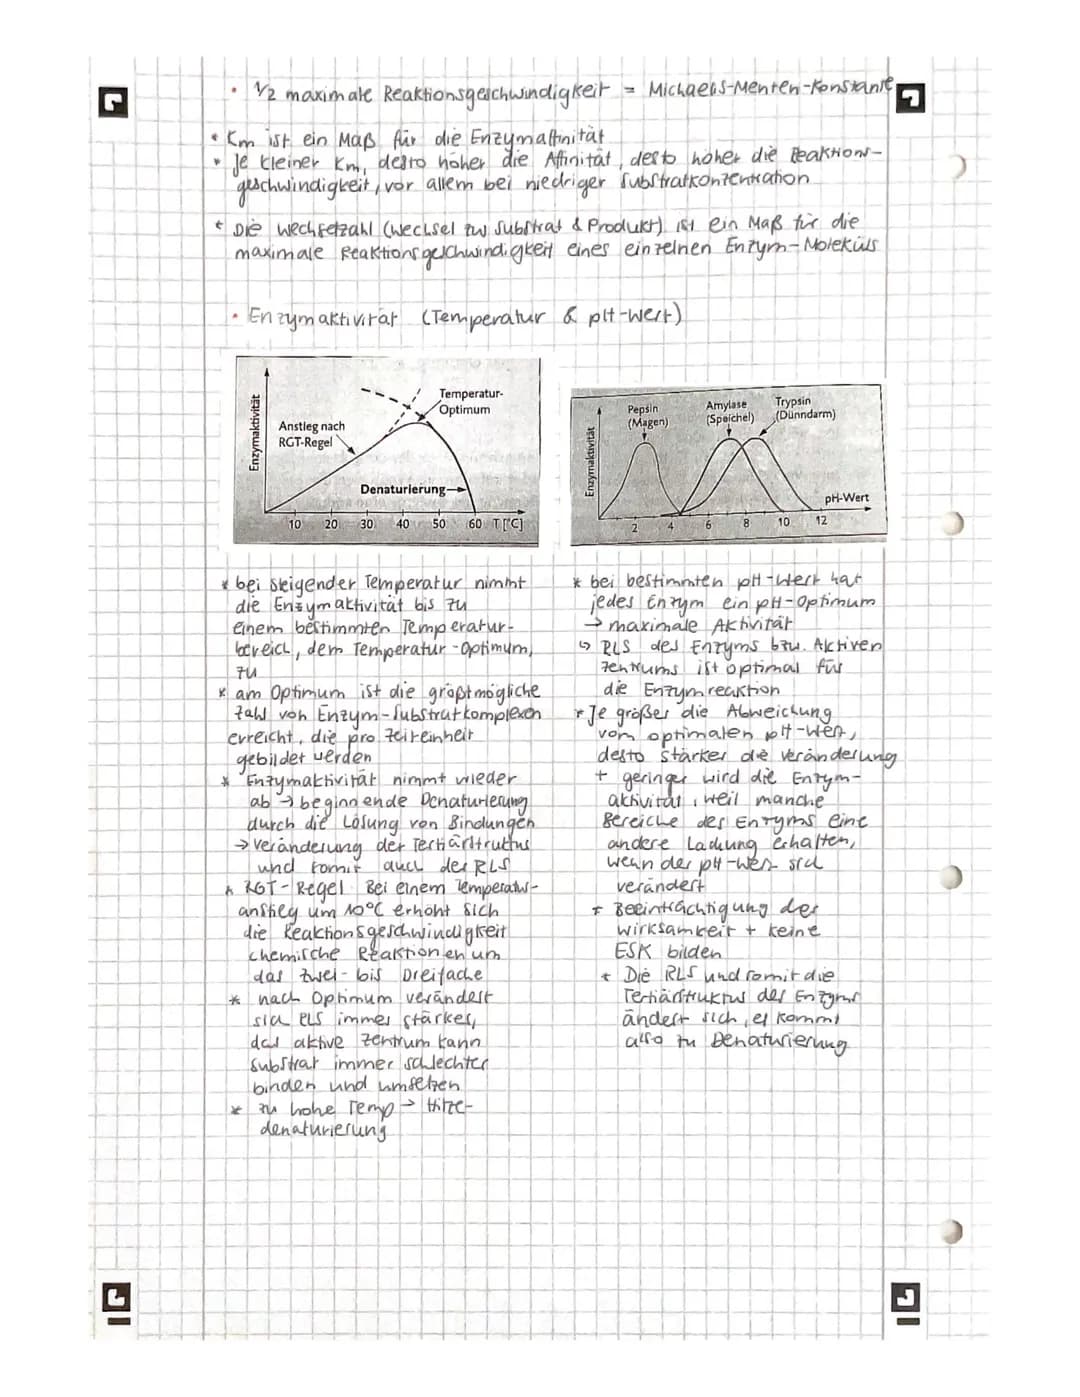 • 1/2 maximale Reaktionsgeschwindigkeit = Michaelis-Menten-Konstante
• Km ist ein Maß für die Enzymaffinität
• Je kleiner Km, desto höher die Affinität, desto höher die Reaktions-
geschwindigkeit, vor allem bei niedriger Substratkonzentration
* Die Wechselzahl (Wechsel zw. Substrat & Produkt) ist ein Maß für die
maximale Reaktionsgeschwindigkeit eines einzelnen Enzym-Moleküls
• Enzymaktivität (Temperatur & pH-Wert)
Enzymaktivität
Temperatur-
Optimum
Anstieg nach
RGT-Regel
Denaturierung
10 20 30 40 50 60 T [°C]
* bei steigender Temperatur nimmt
die Enzymaktivität bis zu
einem bestimmten Temperatur-
bereich, dem Temperatur-Optimum,
zu
* am Optimum ist die größtmögliche
Zahl von Enzym-Substratkomplexen
erreicht, die pro Zeiteinheit
gebildet werden
* Enzymaktivität nimmt wieder
ab → beginnende Denaturierung
durch die Lösung von Bindungen
→ Veränderung der Tertiärstruktur
und somit auch der RLS
* RGT-Regel Bei einem Temperatur-
anstieg um 10°C erhöht sich
die Reaktionsgeschwindigkeit
chemische Reaktionen um
das zwei- bis Dreifache
* nach Optimum verändert
sich RLS immer stärker,
das aktive Zentrum kann
Substrat immer schlechter
binden und umsetzen
* zu hohe Temp → Hitze-
denaturierung
Enzymaktivität
Pepsin
(Magen)
Amylase
(Speichel)
Trypsin
(Dünndarm)
pH-Wert
2 4 6 8 10 12
* bei bestimmten pH-Wert hat
jedes Enzym ein pH-Optimum
→ maximale Aktivität
↳ RLS des Enzyms bzw. Aktiven
Zentrums ist optimal für
die Enzymreaktion
* Je größer die Abweichung
vom optimalen pH-Wert,
desto stärker die Veränderung
+ geringer wird die Enzym-
aktivität, weil manche
Bereiche des Enzyms eine
andere Ladung erhalten,
wenn der pH-Wert sich
verändert
* Beeinträchtigung der
Wirksamkeit + keine
ESK bilden
* Die RLS und somit die
Tertiärstruktur des Enzyms
ändert sich, es kommt
also zu Denaturierung